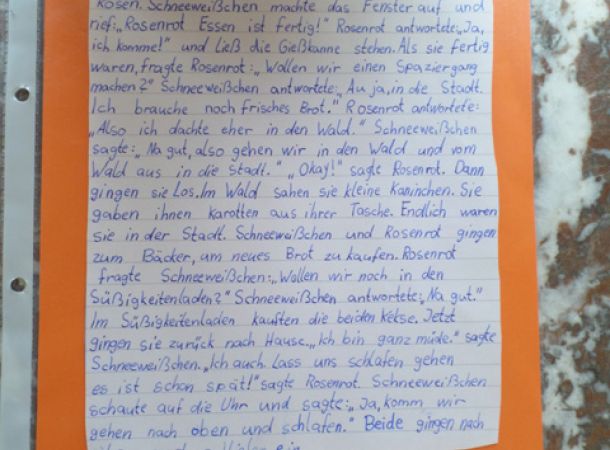 Rosen. Schneeweißchen machte das Fenster auf und
rief:„Rosenrot Essen ist fertig!" Rosenrot antwortete:„Ja,
ich komme!" und Ließ die Gießkanne stehen. Als sie fertig
waren, fragte Rosenrot:„Wollen wir einen Spaziergang
machen?" Schneeweißchen antwortete:„Au ja, in die Stadt.
Ich brauche noch frisches Brot." Rosenrot antwortete:
„Also ich dachte eher in den Wald." Schneeweißchen
sagte:„Na gut, also gehen wir in den Wald und vom
Wald aus in die Stadt." „Okay!" sagte Rosenrot. Dann
gingen sie Los. Im Wald sahen sie kleine Kaninchen. Sie
gaben ihnen karotten aus ihrer Tasche. Endlich waren
sie in der Stadt. Schneeweißchen und Rosenrot gingen
zum Bäcker, um neues Brot zu kaufen. Rosenrot
fragte Schneeweißchen:„Wollen wir noch in den
Süßigkeitenladen?" Schneeweißchen antwortete:„Na gut."
Im Süßigkeitenladen kauften die beiden Kekse. Jetzt
gingen sie zurück nach Hause. „Ich bin ganz müde." sagte
Schneeweißchen. „Ich auch. Lass uns schlafen gehen
es ist schon spät!" sagte Rosenrot. Schneeweißchen
schaute auf die Uhr und sagte:„Ja, komm wir
gehen nach oben und schlafen." Beide gingen nach